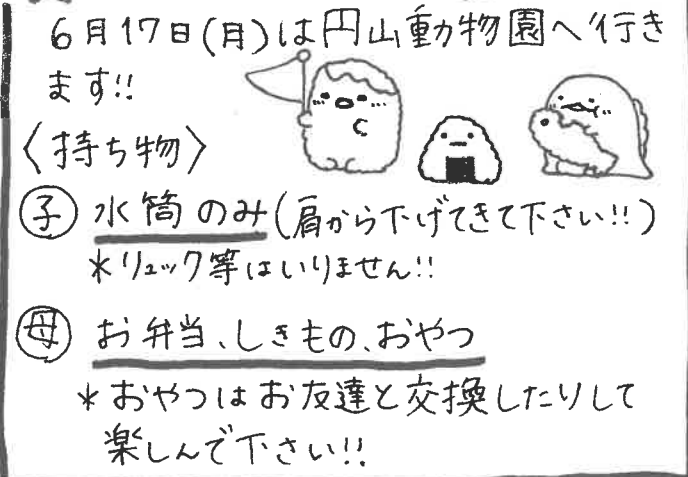 6月17日(月)は円山動物園へ行き
ます!!
〈持ち物〉
子 水筒のみ(肩から下げてきて下さい!!)
*リュック等はいりません!!
母 お弁当、しきもの、おやつ
*おやつはお友達と交換したりして
楽しんで下さい!!